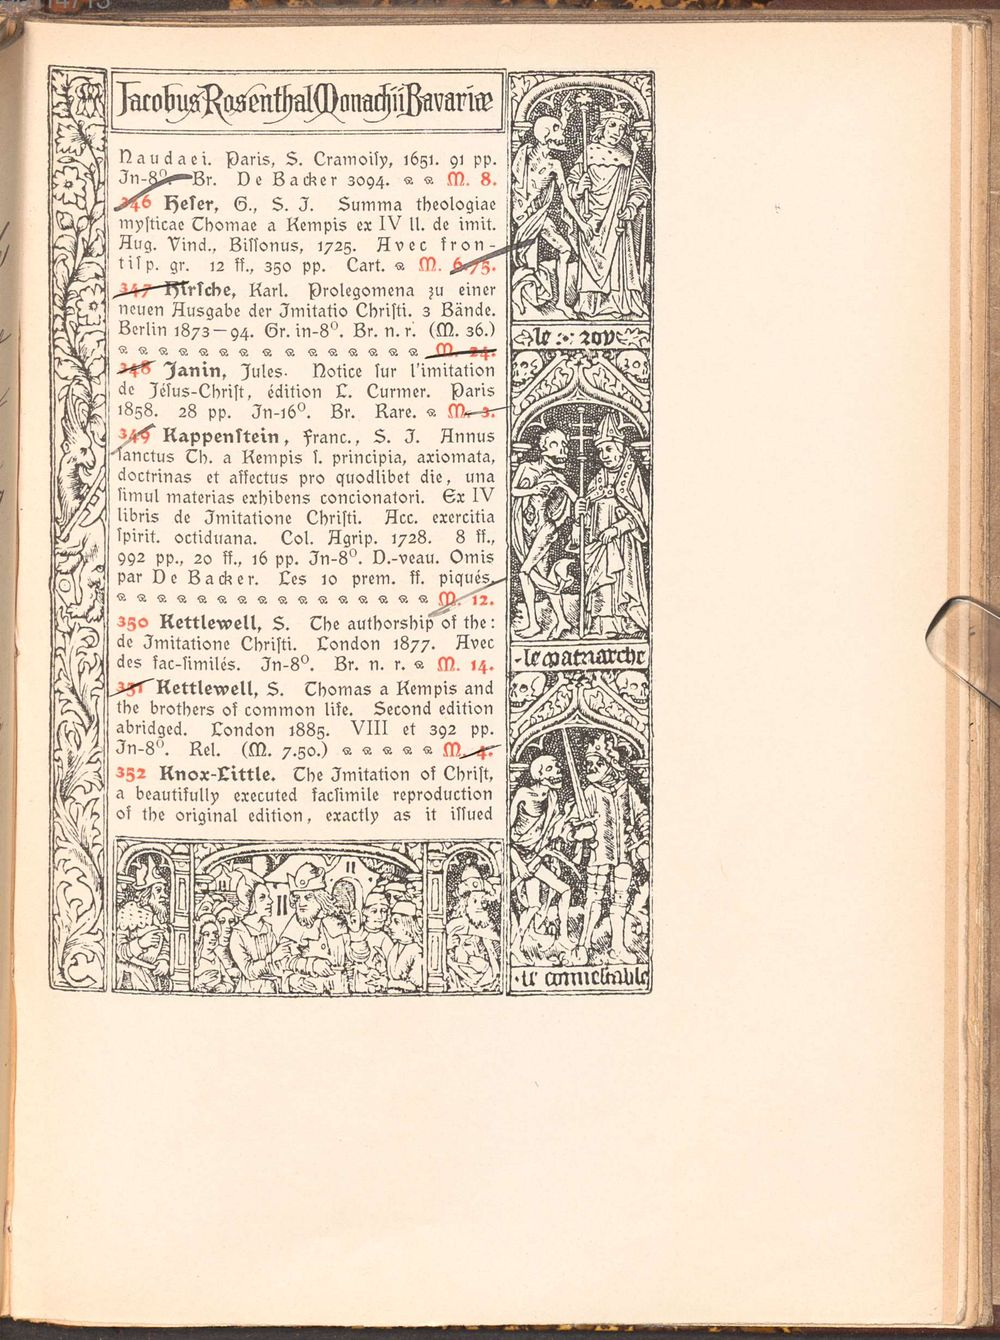 Jacobus Rosenthal Monachii Bavariæ
Naudaei. Paris, S. Cramoiſy, 1651. 91 pp.
In-8⁰. Br. De Backer 3094. M. 8.
346 Heſer, G., S. J. Summa theologiae
myſticae Thomae a Kempis ex IV ll. de imit.
Aug. Vind., Biſſonus, 1725. Avec fron-
tiſp. gr. 12 ff., 350 pp. Cart. M. 6.75.
347 Hirſche, Karl. Prolegomena zu einer
neuen Ausgabe der Imitatio Chriſti. 3 Bände.
Berlin 1873—94. Gr. in-8⁰. Br. n. r. (M. 36.)
M. 24.
348 Janin, Jules. Notice ſur l'imitation
de Jéſus-Chriſt, édition L. Curmer. Paris
1858. 28 pp. In-16⁰. Br. Rare. M. 3.
349 Kappenſtein, Franc., S. J. Annus
ſanctus Th. a Kempis ſ. principia, axiomata,
doctrinas et affectus pro quodlibet die, una
ſimul materias exhibens concionatori. Ex IV
libris de Imitatione Chriſti. Acc. exercitia
ſpirit. octiduana. Col. Agrip. 1728. 8 ff.,
992 pp., 20 ff., 16 pp. In-8⁰. D.-veau. Omis
par De Backer. Les 10 prem. ff. piqués.
M. 12.
350 Kettlewell, S. The authorship of the:
de Imitatione Chriſti. London 1877. Avec
des fac-ſimilés. In-8⁰. Br. n. r. M. 14.
351 Kettlewell, S. Thomas a Kempis and
the brothers of common life. Second edition
abridged. London 1885. VIII et 392 pp.
In-8⁰. Rel. (M. 7.50.) M. 4.
352 Knox-Little. The Imitation of Chriſt,
a beautifully executed facſimile reproduction
of the original edition, exactly as it iſſued
le roy
le patriarche
le conneſtable